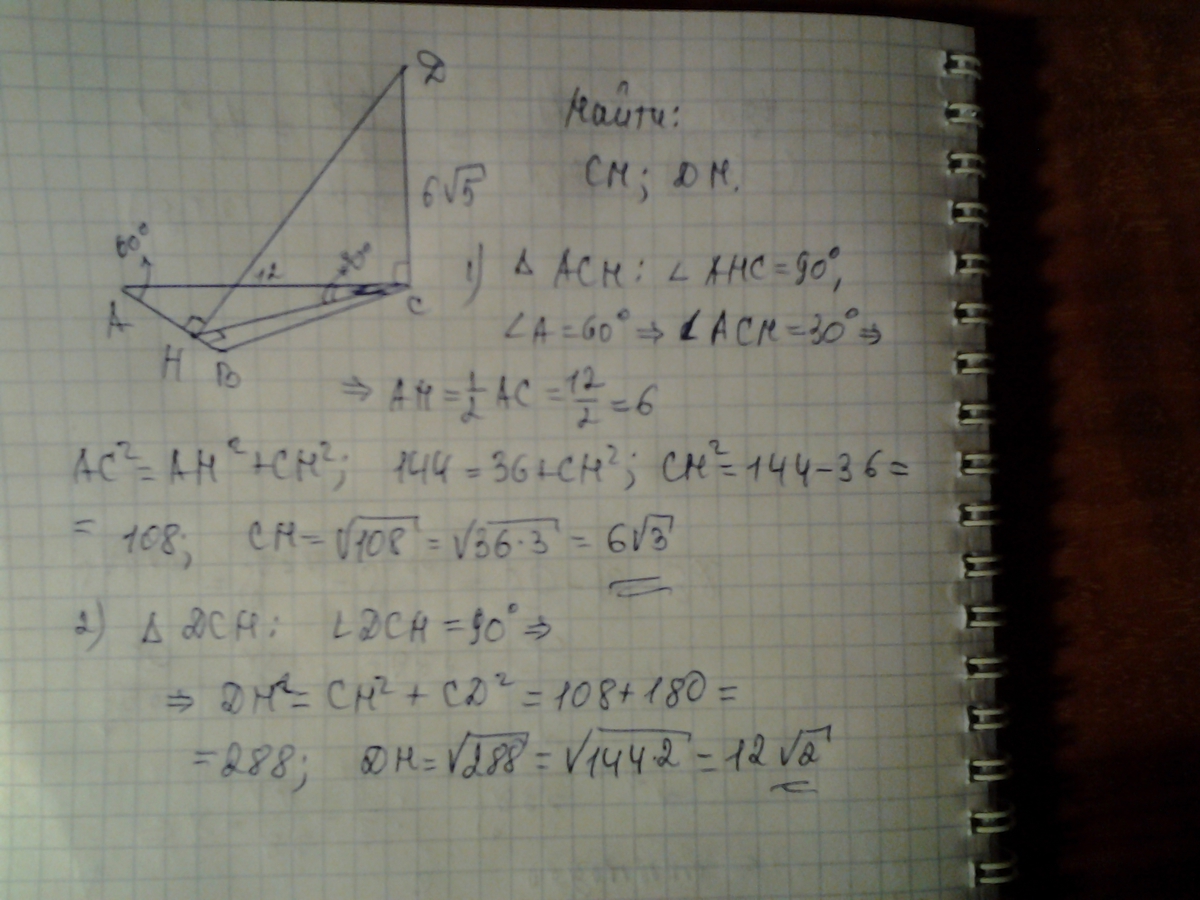 D
Найти:
CH; DH.
6√5
60°
12
A
C
H
B
1) Δ ACH: ∠AHC = 90°,
∠A = 60° ⇒ ∠ACH = 30° ⇒
⇒ AH = 1/2 AC = 12/2 = 6
AC² = AH² + CH²; 144 = 36 + CH²; CH² = 144 - 36 =
= 108; CH = √108 = √36·3 = 6√3
2) Δ DCH: ∠DCH = 90° ⇒
⇒ DH² = CH² + CD² = 108 + 180 =
= 288; DH = √288 = √144·2 = 12√2